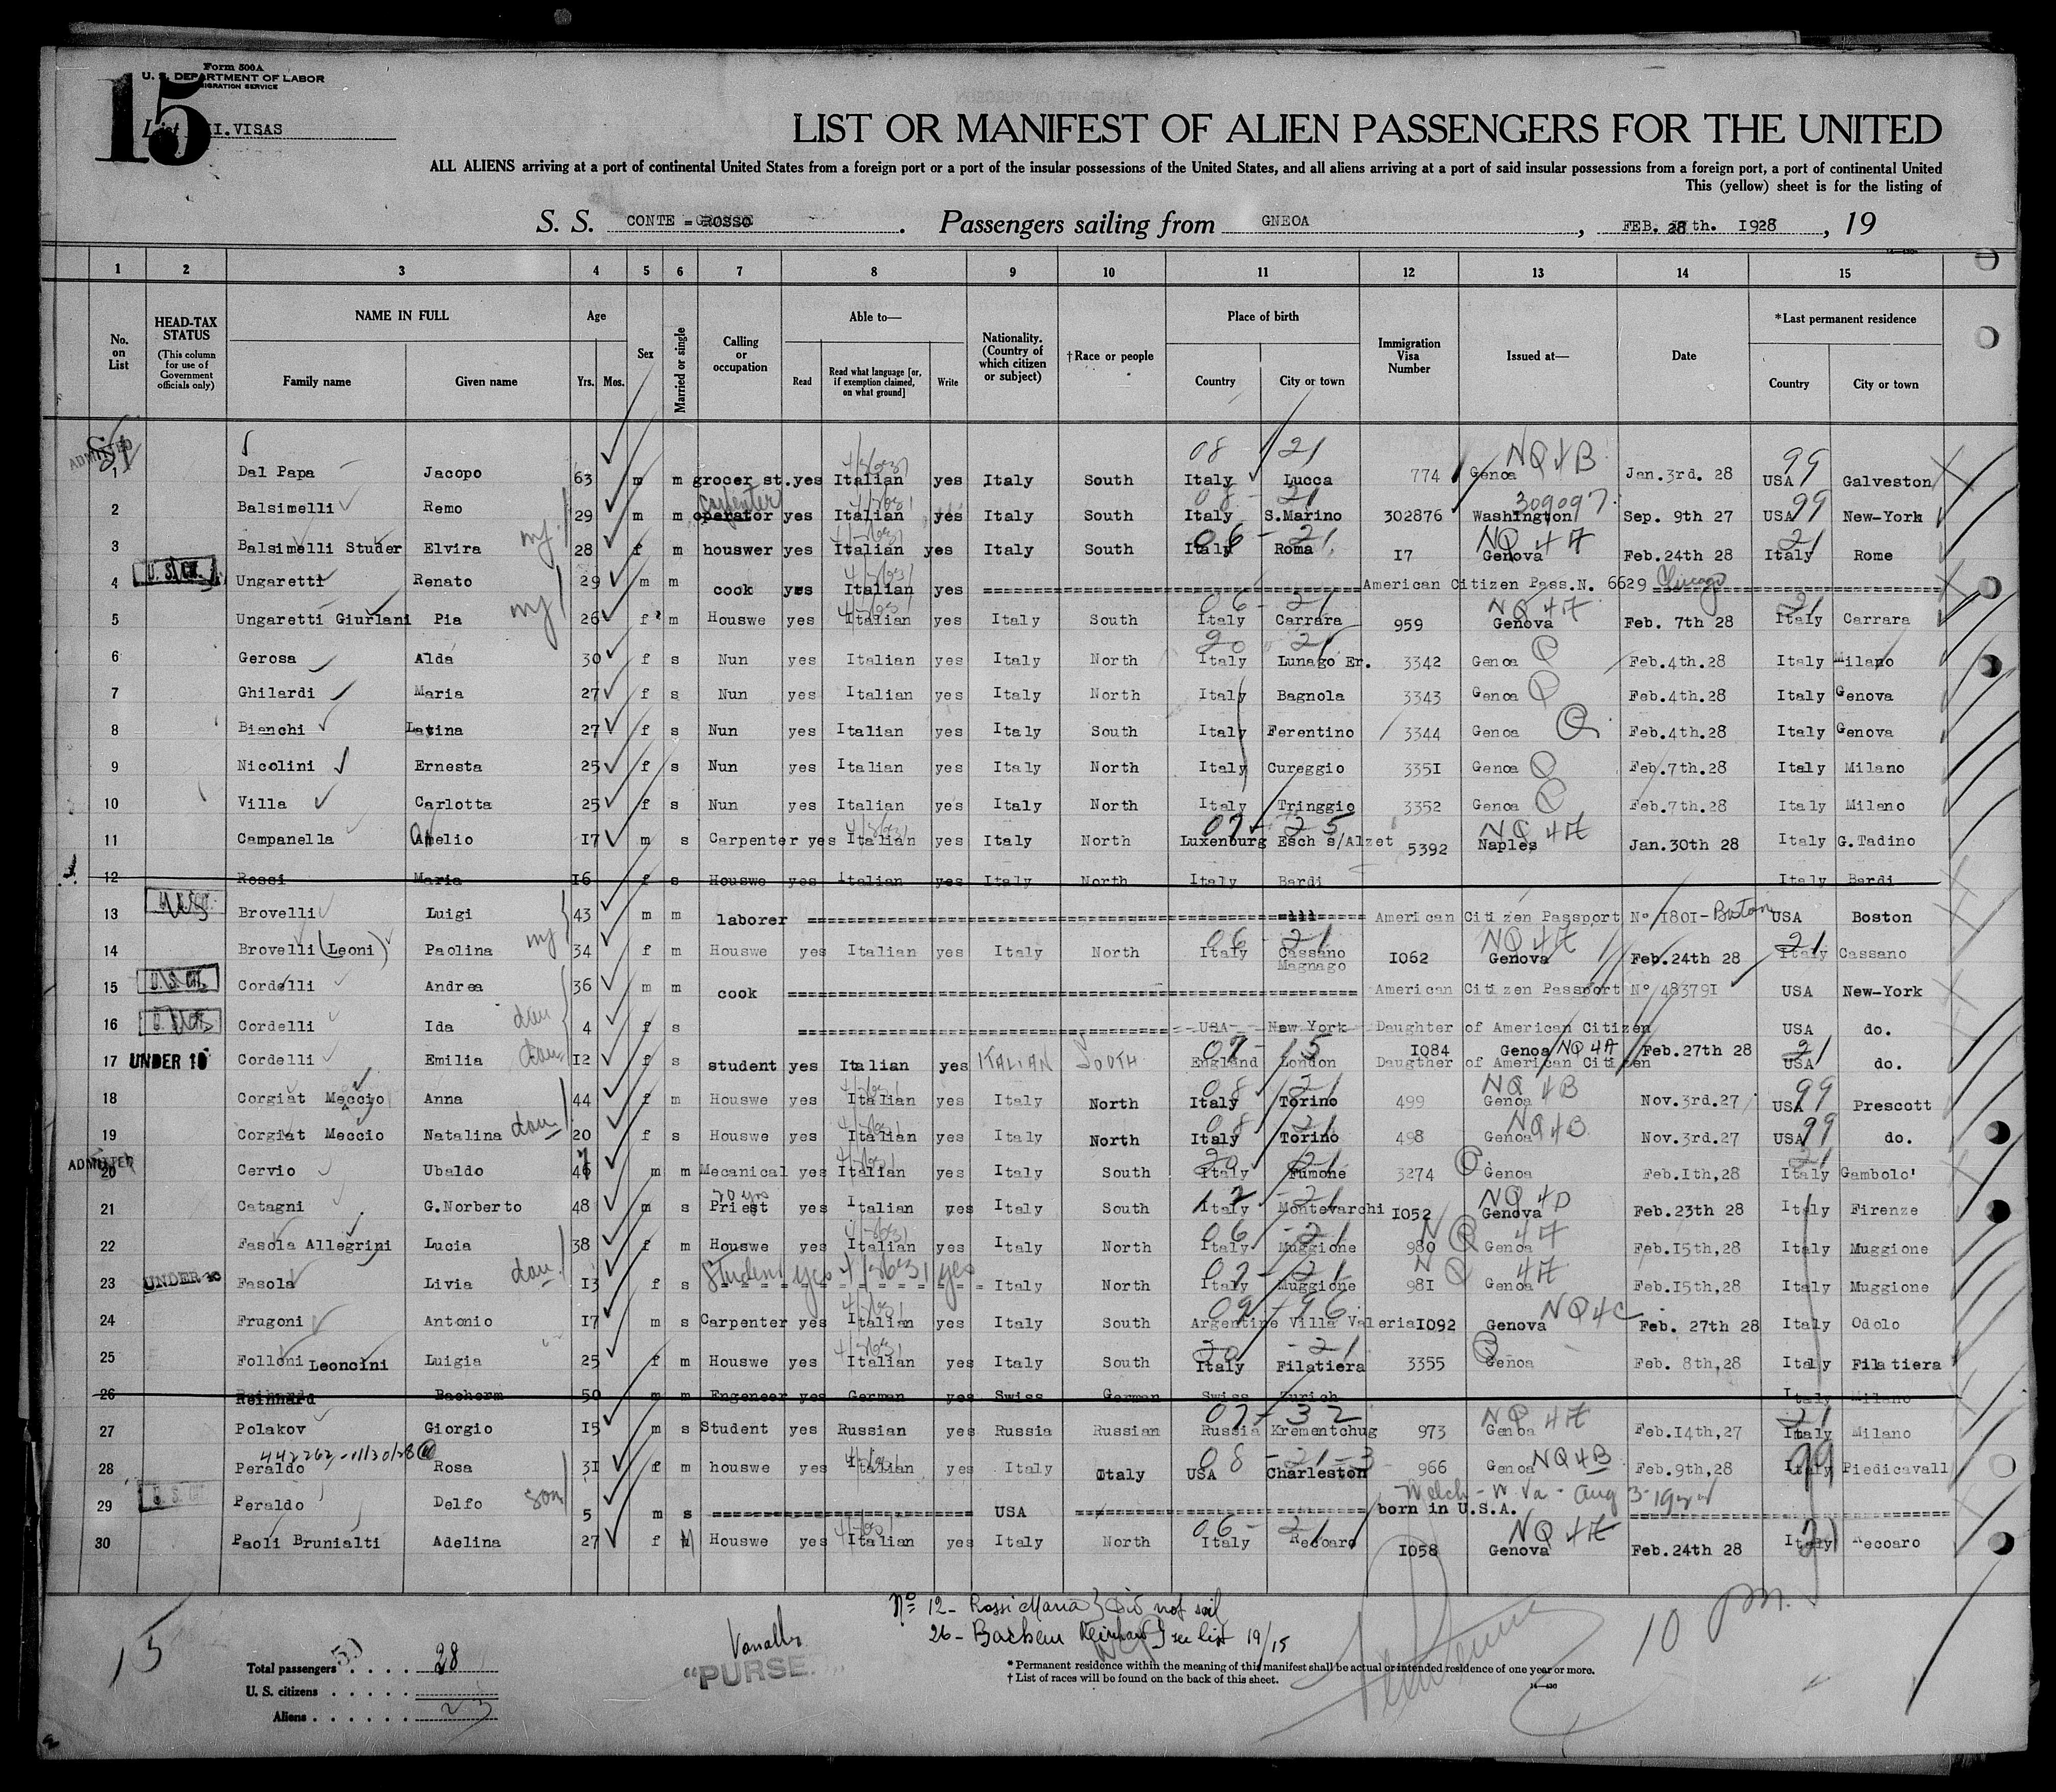 Form 500A
U. S. DEPARTMENT OF LABOR
IMMIGRATION SERVICE
15
List II.VISAS
LIST OR MANIFEST OF ALIEN PASSENGERS FOR THE UNITED
ALL ALIENS arriving at a port of continental United States from a foreign port or a port of the insular possessions of the United States, and all aliens arriving at a port of said insular possessions from a foreign port, a port of continental United
This (yellow) sheet is for the listing of
S. S. CONTE = ROSSO . Passengers sailing from GNEOA , FEB. 28 th. 1928 , 19
1 2 3 4 5 6 7 8 9 10 11 12 13 14 15
No. on List
HEAD-TAX STATUS (This column for use of Government officials only)
NAME IN FULL
Family name Given name
Age
Yrs. Mos.
Sex
Married or single
Calling or occupation
Able to—
Read
Read what language [or, if exemption claimed, on what ground]
Write
Nationality. (Country of which citizen or subject)
†Race or people
Place of birth
Country City or town
Immigration Visa Number
Issued at—
Date
*Last permanent residence
Country City or town
ADMITTED
08 21 NQ4B 99
1 Dal Papa Jacopo 63 m m grocer st. yes Italian yes Italy South Italy Lucca 774 Genoa Jan.3rd. 28 USA Galveston
carpenter 08 - 21 309097 99
2 Balsimelli Remo 29 m m operator yes Italian yes Italy South Italy S.Marino 302876 Washington Sep. 9th 27 USA New-York
06 - 21 NQ 4A 21
3 Balsimelli Studer Elvira 28 f m houswer yes Italian yes Italy South Italy Roma I7 Genova Feb.24th 28 Italy Rome
4 U. S. Cit. Ungaretti Renato 29 m m cook yes Italian yes American Citizen Pass.N. 6629 Chicago
06 - 21 NQ 4A 21
5 Ungaretti Giurlani Pia 26 f m Houswe yes Italian yes Italy South Italy Carrara 959 Genova Feb. 7th 28 Italy Carrara
20 21
6 Gerosa Alda 30 f s Nun yes Italian yes Italy North Italy Lunago Er. 3342 Genoa Feb.4th.28 Italy Milano
7 Ghilardi Maria 27 f s Nun yes Italian yes Italy North Italy Bagnola 3343 Genoa Feb.4th.28 Italy Genova
8 Bianchi Latina 27 f s Nun yes Italian yes Italy South Italy Ferentino 3344 Genoa Feb.4th.28 Italy Genova
9 Nicolini Ernesta 25 f s Nun yes Italian yes Italy North Italy Cureggio 335I Genoa Feb.7th.28 Italy Milano
10 Villa Carlotta 25 f s Nun yes Italian yes Italy North Italy Tringgio 3352 Genoa Feb.7th.28 Italy Milano
07 - 25 NQ 4A
11 Campanella Amelio I7 m s Carpenter yes Italian yes Italy North Luxenburg Esch s/Alzet 5392 Naples Jan.30th 28 Italy G.Tadino
12 Rossi Maria I6 f s Houswe yes Italian yes Italy North Italy Bardi Italy Bardi
13 Brovelli Luigi 43 m m laborer American Citizen Passport N° I80I- Boston USA Boston
06 - 21 NQ 4A 21
14 Brovelli (Leoni) Paolina 34 f m Houswe yes Italian yes Italy North Italy Cassano Magnago I062 Genova Feb.24th 28 Italy Cassano
15 U. S. Cit. Cordelli Andrea 36 m m cook American Citizen Passport N° 48379I USA New-York
16 Cordelli Ida dau 4 f s USA New York Daughter of American Citizen USA do.
07 - 15 I084 Genoa NQ 4A Feb.27th 28 21
17 UNDER 16 Cordelli Emilia dau I2 f s student yes Italian yes ITALIAN SOUTH England London Daugther of American Citizen USA do.
08 21 NQ 4B 99
18 Corgiat Meccio Anna 44 f m Houswe yes Italian yes Italy North Italy Torino 499 Genoa Nov.3rd.27 USA Prescott
08 21 NQ4B 99
19 Corgiat Meccio Natalina dau 20 f s Houswe yes Italian yes Italy North Italy Torino 498 Genoa Nov.3rd.27 USA do.
ADMITTED
20 Cervio Ubaldo 46 m m Mecanical yes Italian yes Italy South Italy Fumone 3274 Genoa Feb.Ith,28 Italy Gambolo'
12 - 21 NQ 4D
21 Catagni G.Norberto 48 m s Priest yes Italian yes Italy South Italy Montevarchi I052 Genova Feb.23th 28 Italy Firenze
06 - 21 NQ 4A
22 Fasola Allegrini Lucia 38 f m Houswe yes Italian yes Italy North Italy Muggione 980 Genoa Feb.I5th,28 Italy Muggione
07 - 21 NQ 4A
23 UNDER 16 Fasola Livia dau. I3 f s Student yes yes Italy North Italy Muggione 98I Genoa Feb.I5th,28 Italy Muggione
09 - 96 NQ4C
24 Frugoni Antonio I7 m s Carpenter yes Italian yes Italy South Argentine Villa Valeria I092 Genova Feb. 27th 28 Italy Odolo
20 - 21
25 Folloni Leoncini Luigia 25 f m Houswe yes Italian yes Italy South Italy Filatiera 3355 Genoa Feb. 8th,28 Italy Filatiera
26 Reinhard Bachorm 50 m m Engeneer yes German yes Swiss German Swiss Zurich Italy Milano
07 - 32 NQ 4A 21
27 Polakov Giorgio I5 m s Student yes Russian yes Russia Russian Russia Krementchug 973 Genoa Feb.I4th,27 Italy Milano
08 - 21-3 NQ4B 99
28 Peraldo Rosa 3I f m houswe yes Italian yes Italy Italy USA Charleston 966 Genoa Feb.9th,28 Italy Piedicavall
Welch - W Va - Aug 3-1922
29 Peraldo Delfo son 5 m s USA born in U.S.A.
06 - 21 NQ 4A 21
30 Paoli Brunialti Adelina 27 f M Houswe yes Italian yes Italy North Italy Recoaro I058 Genova Feb.24th 28 Italy Recoaro
N° 12 - Rossi Maria } Did not sail
26 - Bachem Reinhard } see list 19/15
15
10 Pm.
Total passengers . . . . 28
U. S. citizens . . . . .
Aliens . . . . . . 23
"PURSER"
* Permanent residence within the meaning of this manifest shall be actual or intended residence of one year or more.
† List of races will be found on the back of this sheet.
14—430